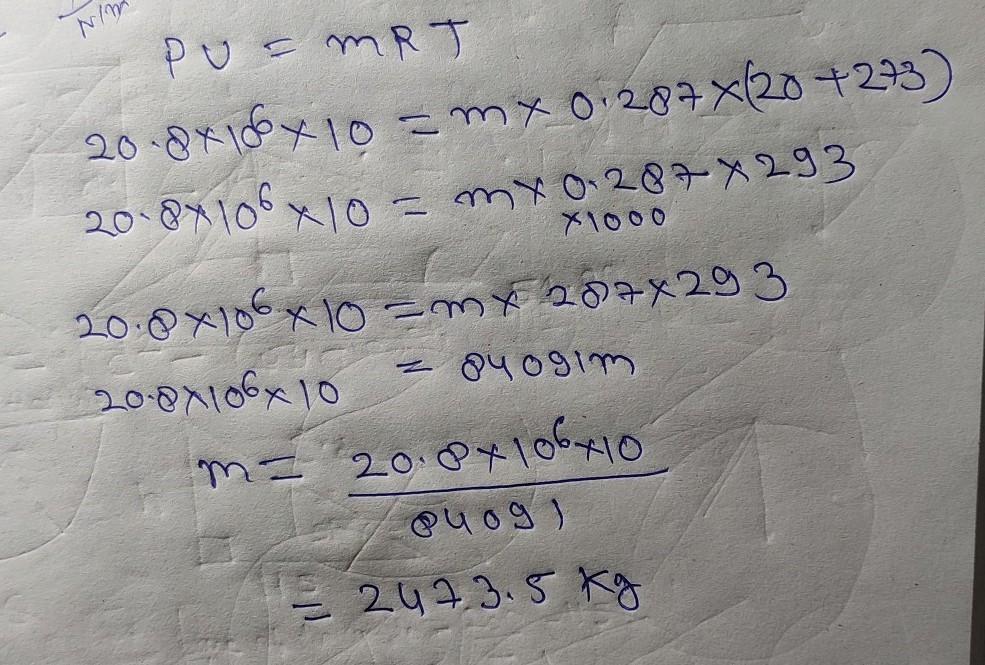 N/m
PV = mRT
20.8×10⁶×10 = m× 0.287×(20+273)
20.8×10⁶×10 = m×0.287×293
×1000
20.8×10⁶×10 = m× 287×293
20.8×10⁶×10 = 84091m
m = 20.8×10⁶×10
84091
= 2473.5 Kg